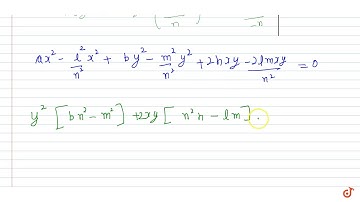 ax² - l²/n² x² + by² - m²/n² y² + 2hxy - 2lmxy/n² = 0
y² [ bn² - m² ] + 2xy [ n²h - lm ]